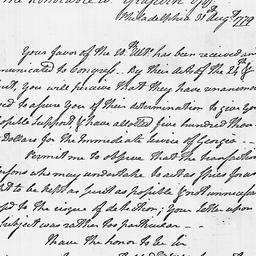 the Honorable W. Glascock Esqr
Philadelphia 31st Augt 1779
Your favor of the 10th Ulto has been received and
municated to Congress. By their Acts of the 24th &
you will perceive that they have unanimous
ed to assure you of their determination to give you
possible support & have allotted five hundred thou
Dollars for the Immediate service of Georgia
Permit me to observe that the transaction
sons who may undertake to act as spies for us
t to be kept as secret as possible & not unnecessa
ed to the risque of detection; your letter upon
subject was rather too particular
I have the honor to be &c